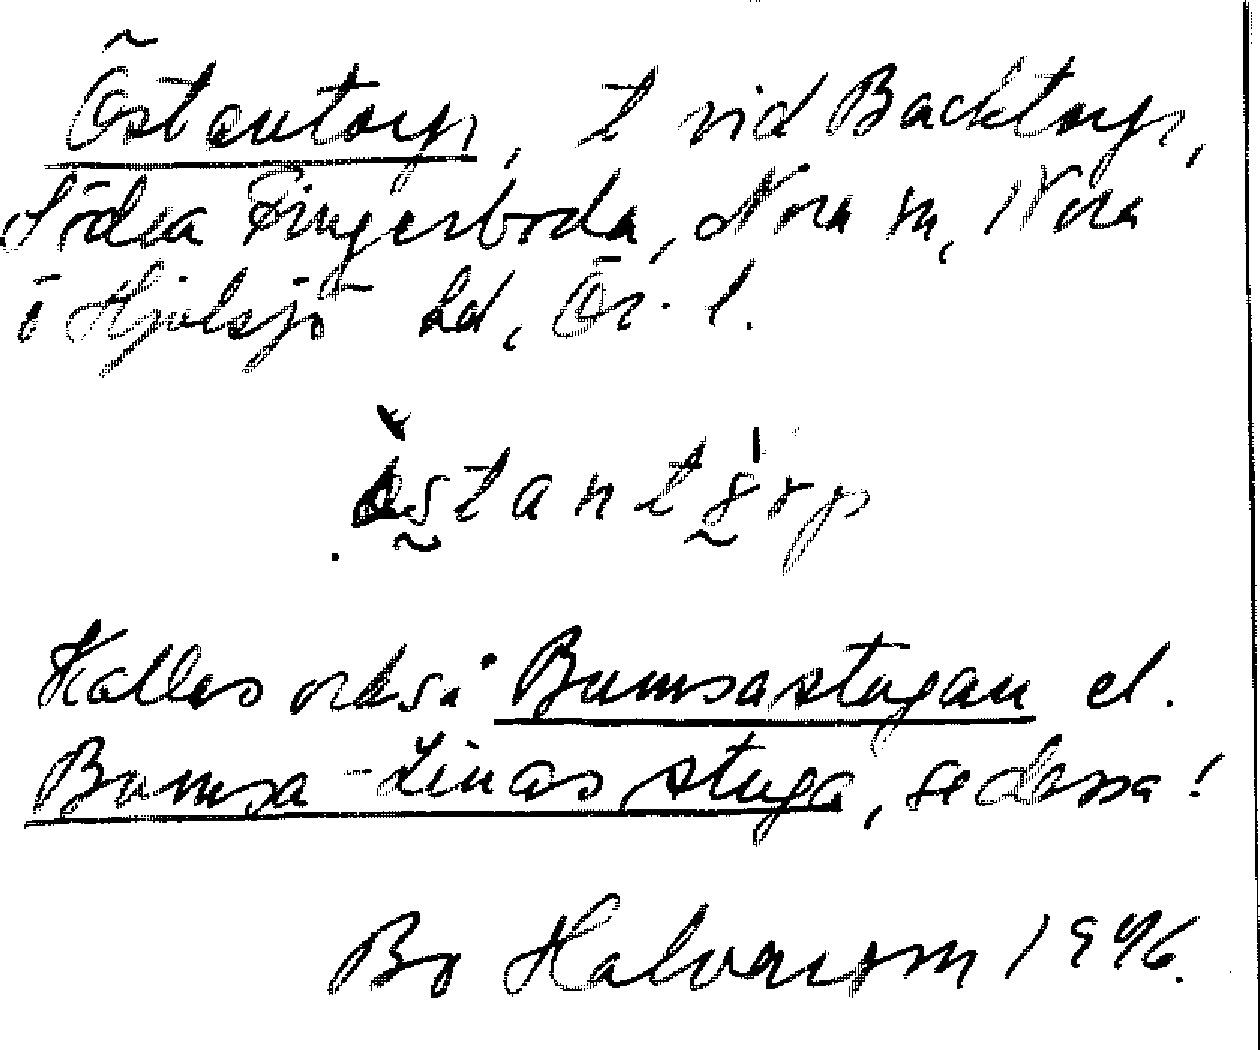 Östantorp, t vid Backtorp,
Södra Fingerboda, Nora sn, Nora
o Hjulsjö hd, Ör. l.
Kallas också Bumsastugan el.
Bumsa-Linas stuga, se dessa!
Bo Halvarsson 1996.